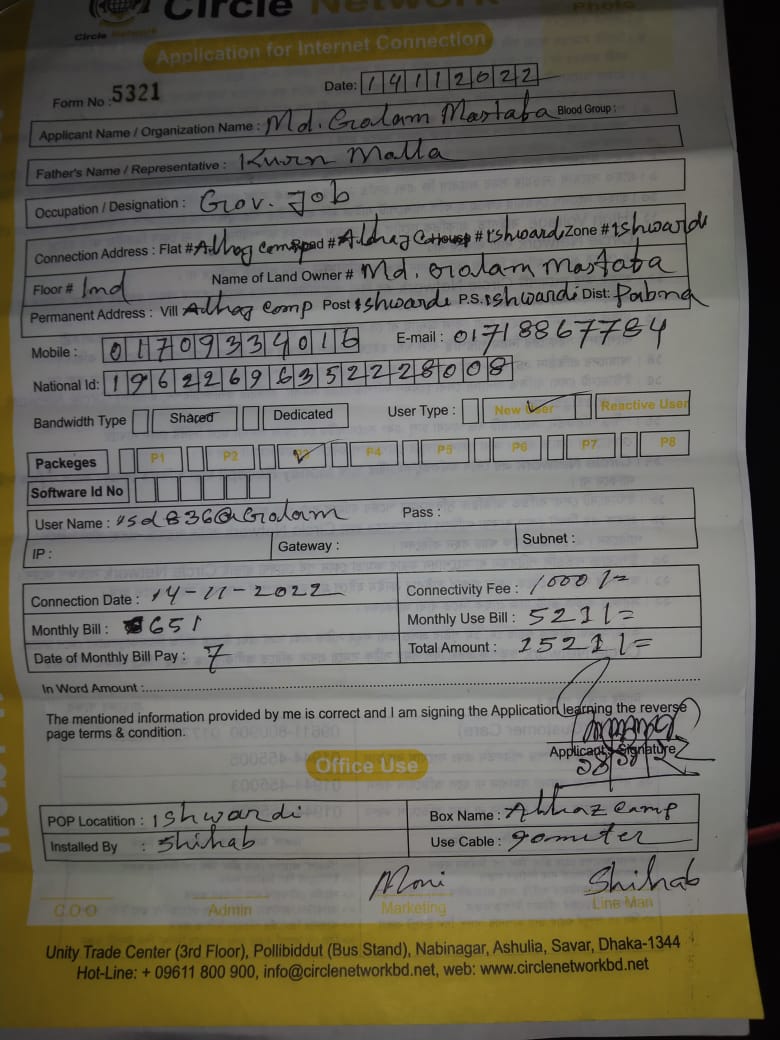 Circle Network
Circle Network
Photo
Application for Internet Connection
Form No : 5321
Date: 14112022
Applicant Name / Organization Name : Md. Golam Mastaba Blood Group :
Father's Name / Representative : Kurn Malla
Occupation / Designation : Gov. Job
Connection Address : Flat # Alhaj Comp Road # Alhaj C House # Ishwardi Zone # Ishwardi
Floor # Ind Name of Land Owner # Md. Golam Mastaba
Permanent Address : Vill Alhaj Comp Post Ishwardi P.S. Ishwardi Dist: Pabna
Mobile : 01709334016 E-mail : 01718867784
National Id: 19622696352228008
Bandwidth Type Shared Dedicated User Type : New User Reactive User
Packeges P1 P2 P3 P4 P5 P6 P7 P8
Software Id No
User Name : usd836@Golam Pass :
IP : Gateway : Subnet :
Connection Date : 14-11-2022 Connectivity Fee : 1000/=
Monthly Bill : 651 Monthly Use Bill : 521/=
Date of Monthly Bill Pay : 7 Total Amount : 1521/=
In Word Amount :
The mentioned information provided by me is correct and I am signing the Application learning the reverse
page terms & condition.
Applicant's Signature
Office Use
POP Locatition : Ishwardi Box Name : Alhaz Camp
Installed By : Shihab Use Cable : 90miter
Moni Shihab
C.O.O Admin Marketing Line Man
Unity Trade Center (3rd Floor), Pollibiddut (Bus Stand), Nabinagar, Ashulia, Savar, Dhaka-1344
Hot-Line: + 09611 800 900, info@circlenetworkbd.net, web: www.circlenetworkbd.net